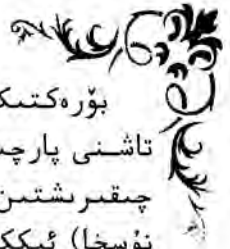 بۆرەكتىك
تاشنى پارچى
چىقىرىشتىن
نۇسخا) ئىككى